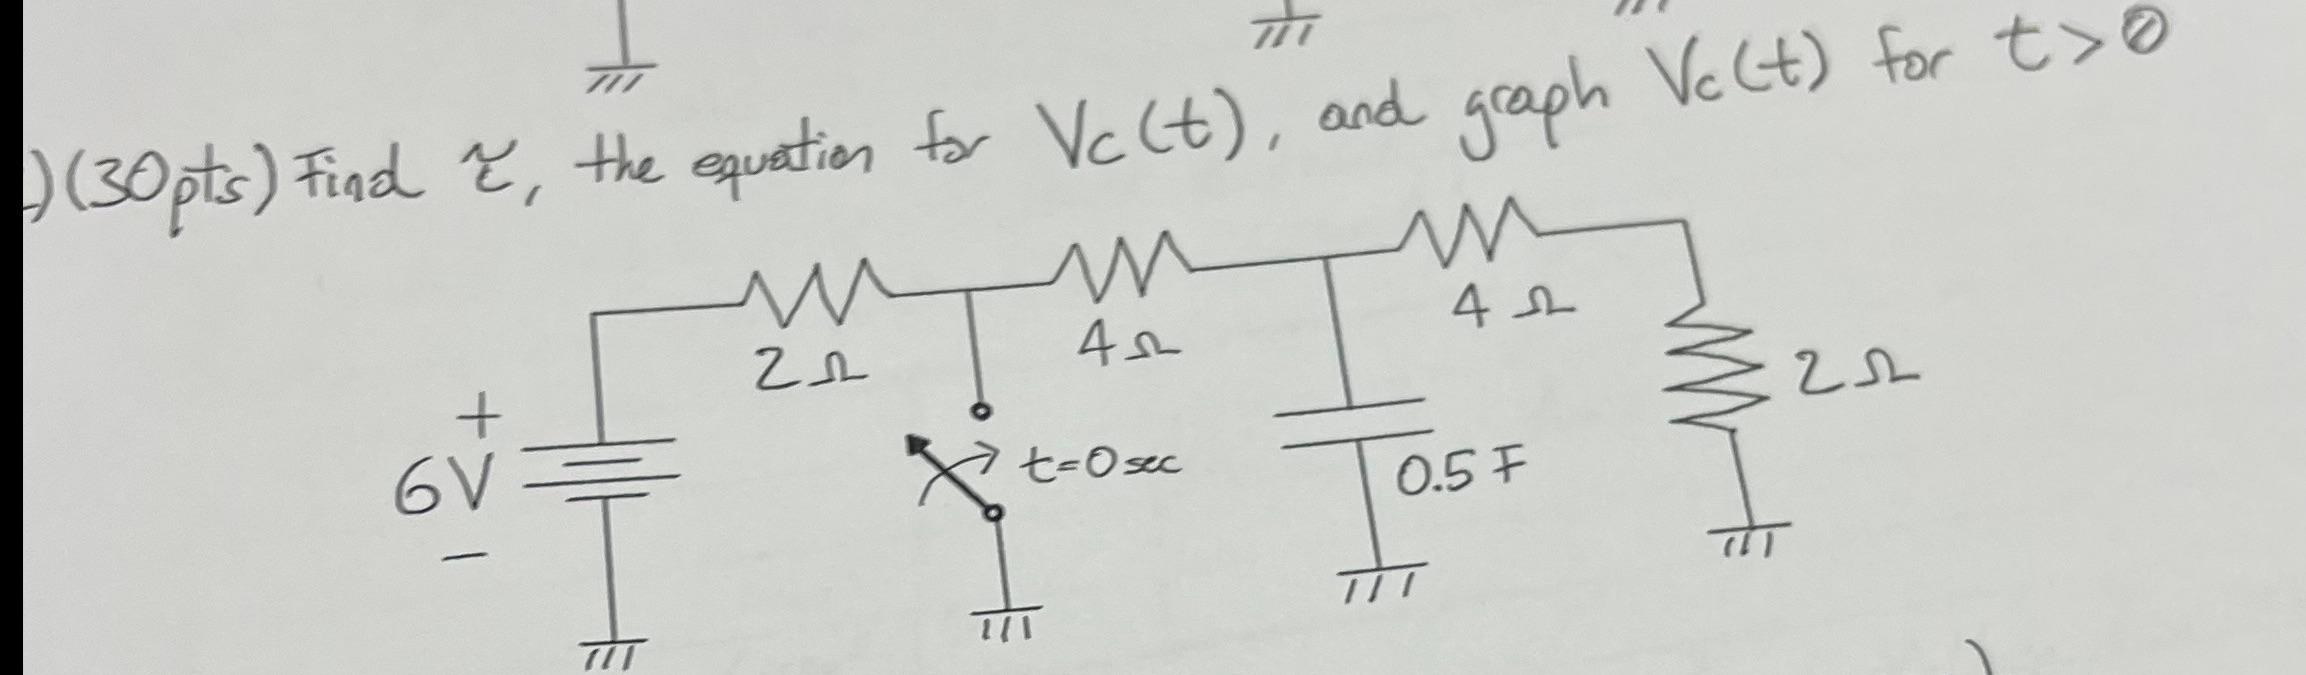 )(30pts) Find τ, the equation for Vc(t), and graph Vc(t) for t>0
2Ω
4Ω
4Ω
2Ω
+
6V
−
t=0sec
0.5F